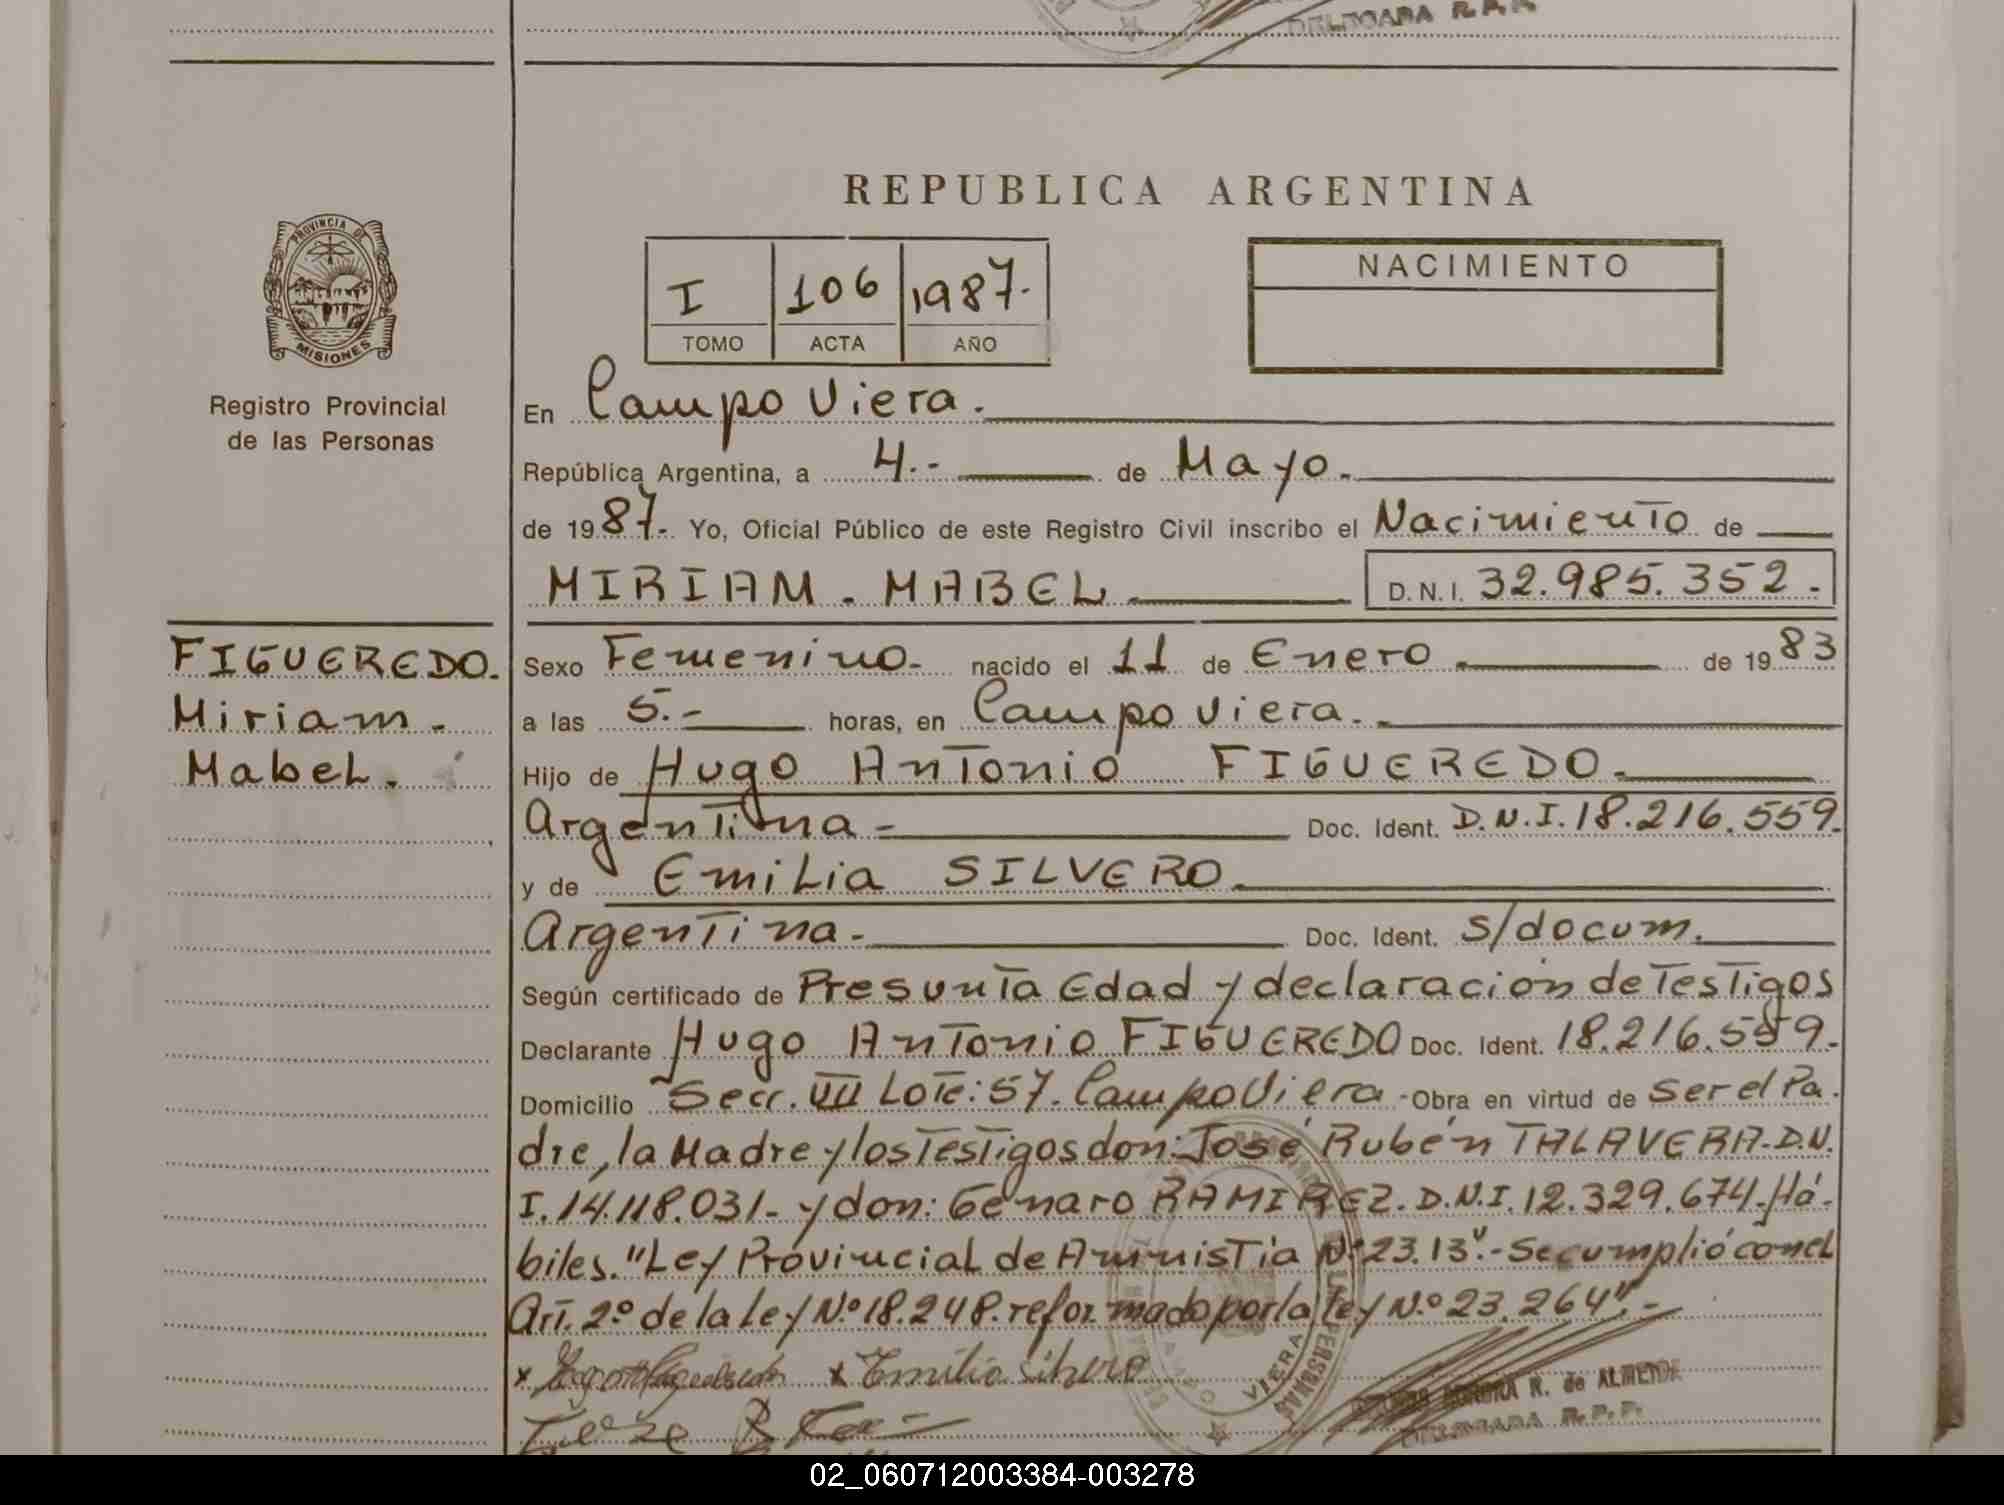 DELEGADA R.P.P.
REPUBLICA ARGENTINA
PROVINCIA DE
MISIONES
Registro Provincial
de las Personas
I 106 1987.
TOMO ACTA AÑO
NACIMIENTO
En Campo Viera.
República Argentina, a 4.- de Mayo.
de 1987.- Yo, Oficial Público de este Registro Civil inscribo el Nacimiento de
MIRIAM - MABEL D.N.I. 32.985.352.-
FIGUEREDO.
Miriam.
Mabel.
Sexo Femenino.- nacido el 11 de Enero de 1983
a las 5.- horas, en Campo Viera.
Hijo de Hugo Antonio FIGUEREDO.
Argentina - Doc. Ident. D.N.I. 18.216.559.
y de Emilia SILVERO
Argentina. Doc. Ident. s/docum.
Según certificado de Presunta Edad y declaración de Testigos
Declarante Hugo Antonio FIGUEREDO Doc. Ident. 18.216.559.-
Domicilio Secc. VII Lote: 57. Campo Viera.- Obra en virtud de Ser el Pa.
dre, la Madre y los Testigos don: José Rubén TALAVERA. D.N.
I. 14.118.031.- y don: Genaro RAMIREZ. D.N.I. 12.329.674.- Há-
biles. "Ley Provincial de Amnistia Nº 23.13".- Se cumplió con el
Art. 2º de la Ley Nº 18.248. reformado por la Ley N.º 23.264".-
x x Emilia Silvero
VIERA
AURORA R. de ALMENDE
DELEGADA R.P.P.
02_060712003384-003278